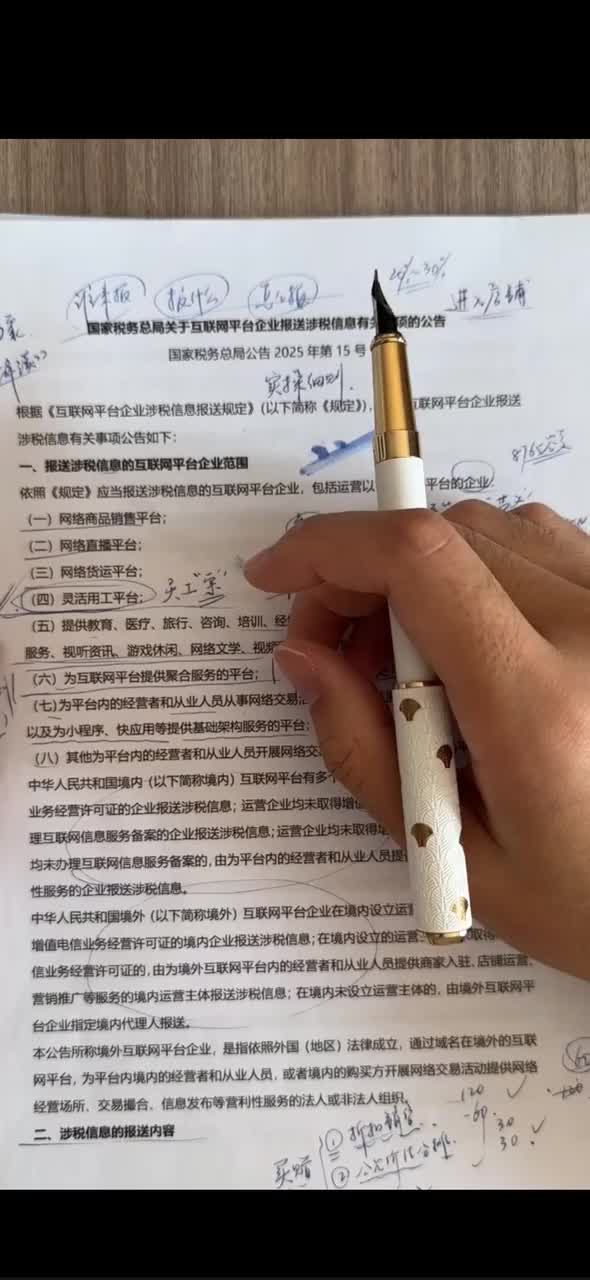 谁来报 报什么 怎么报 20%~30%
进入店铺
国家税务总局关于互联网平台企业报送涉税信息有关 项的公告
国家税务总局公告 2025 年第 15 号
实操细则.
根据《互联网平台企业涉税信息报送规定》(以下简称《规定》), 互联网平台企业报送
涉税信息有关事项公告如下:
一、报送涉税信息的互联网平台企业范围
依照《规定》应当报送涉税信息的互联网平台企业, 包括运营以 平台的企业:
(一) 网络商品销售平台;
(二) 网络直播平台;
(三) 网络货运平台;
(四) 灵活用工平台;
(五) 提供教育、医疗、旅行、咨询、培训、经
服务、视听资讯、游戏休闲、网络文学、视频
(六) 为互联网平台提供聚合服务的平台;
(七) 为平台内的经营者和从业人员从事网络交易
以及为小程序、快应用等提供基础架构服务的平台;
(八) 其他为平台内的经营者和从业人员开展网络交
中华人民共和国境内 (以下简称境内) 互联网平台有多个
业务经营许可证的企业报送涉税信息; 运营企业均未取得增值
理互联网信息服务备案的企业报送涉税信息; 运营企业均未取得
均未办理互联网信息服务备案的, 由为平台内的经营者和从业人员提
性服务的企业报送涉税信息。
中华人民共和国境外 (以下简称境外) 互联网平台企业在境内设立运营
增值电信业务经营许可证的境内企业报送涉税信息; 在境内设立的运营 取得
信业务经营许可证的, 由为境外互联网平台内的经营者和从业人员提供商家入驻、店铺运营、
营销推广等服务的境内运营主体报送涉税信息; 在境内未设立运营主体的, 由境外互联网平
台企业指定境内代理人报送。
本公告所称境外互联网平台企业, 是指依照外国 (地区) 法律成立, 通过域名在境外的互联
网平台, 为平台内境内的经营者和从业人员, 或者境内的购买方开展网络交易活动提供网络
经营场所、交易撮合、信息发布等营利性服务的法人或非法人组织。
二、涉税信息的报送内容
120
-60
30
30
买赠 ① 折扣销售
②